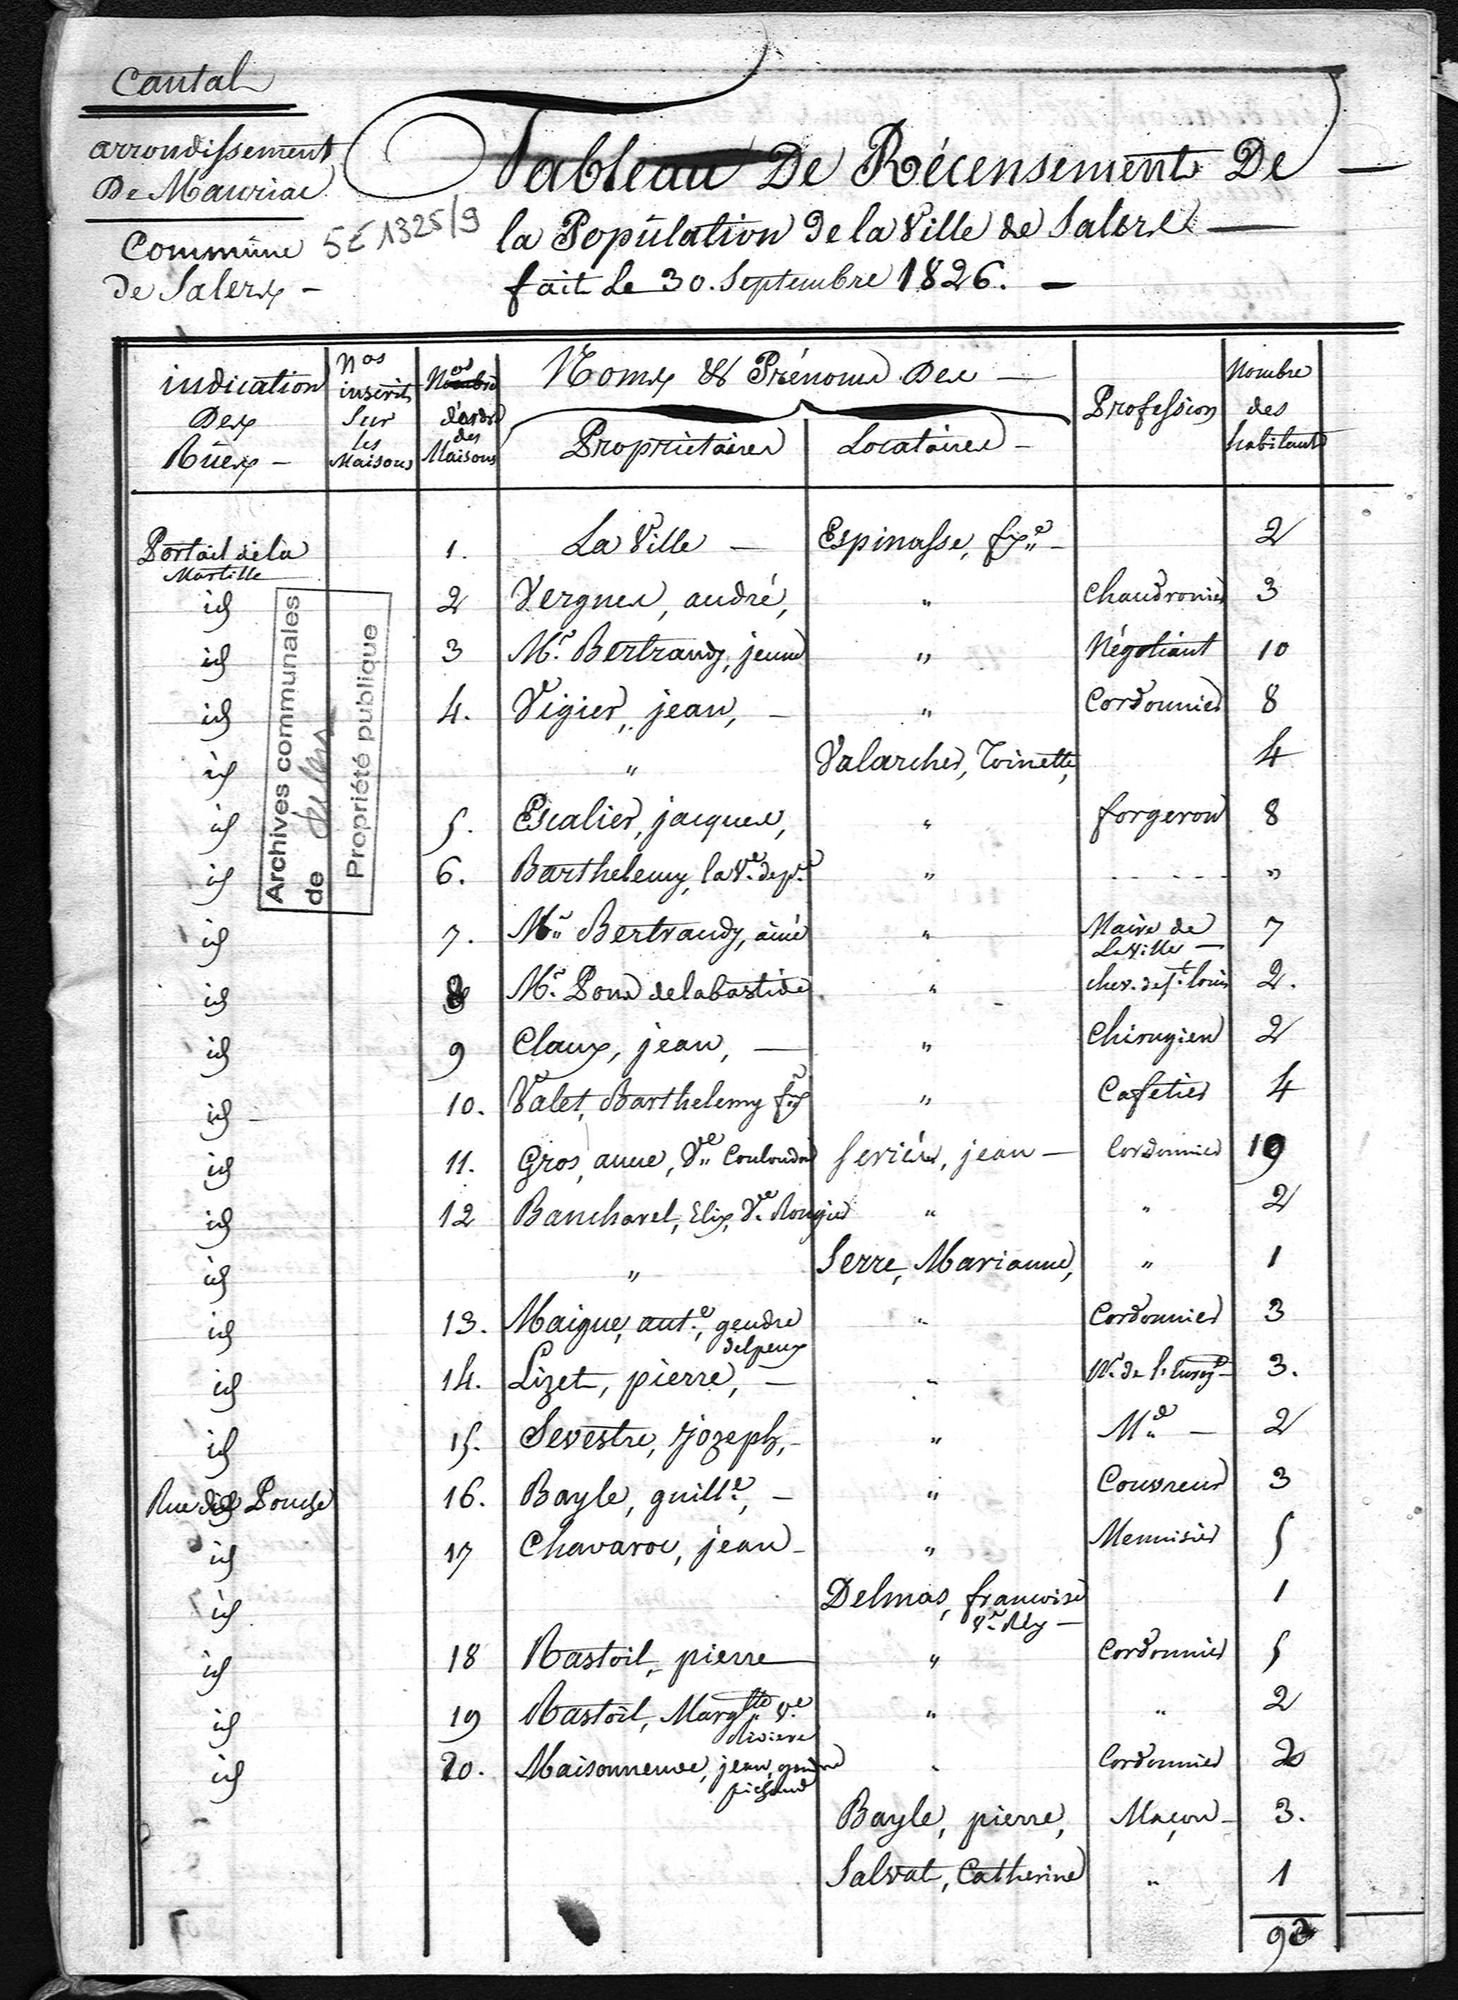 Cantal
arrondissement
De Mauriac
Commune
de Salers -
5E1325/9
Tableau De Récensement De —
la Population de la Ville de Salers —
fait le 30. Septembre 1826. —
indication Des Rües - | Nos inscrits Sur les Maisons | Nos d'ordre des Maisons | Noms & Prénoms Des — | Profession | Nombre des habitants
Propriétaires | Locataires -
Portail de la Martille | 1. | La Ville — | Espinasse, fse - | 2
id | 2 | Vergnes, andré, | " | Chaudronier | 3
id | 3 | Mr. Bertrandy, jeune | " | Négotiant | 10
id | 4. | Vigier, jean, - | " | Cordonnier | 8
id | " | Valarcher, Toinette, | 4
id | 5. | Escalier, jacques, | " | forgeron | 8
id | 6. | Barthelemy, la Ve. de pre | " | - - - - - | "
id | 7. | Mr. Bertrandy, ainé | " | Maire de La Ville — | 7
id | 8 | Mr. Pons delabastide | " | chev. de St. Louis | 2.
id | 9 | Claux, jean, — | " | Chirugien | 2
id - | 10. | Valet, Barthelemy | " | Cafetier | 4
id | 11. | Gros, anne, Ve. | jean — | Cordonnier | 19
id | 12 | Bancharel, Elix, Ve. Rougier | " | " | 2
id | " | Serre, Marianne, | " | 1
id | 13. | Maigne, ante., gendre delpeux | " | Cordonnier | 3
id | 14. | Lizet, pierre, — | " | 3.
id | 15. | Sevestre, jozeph, - | " | Md — | 2
Rue Pouche | 16. | Bayle, guille., - | " | Couvreur | 3
id | 17 | Chavaroc, jean - | " | Menuisier | 5
id | Delmas, francoise Ve. Rey — | 1
id | 18 | Rastoil, pierre | " | Cordonnier | 5
id | 19 | Rastoil, Margtte Ve. Riviere | " | " | 2
id | 20. | Maisonneuve, jean, gendre | " | Cordonnier | 2
Bayle, pierre, | Maçon - | 3.
Salvat, Catherine | " | 1
Archives communales
de Salers
Propriété publique